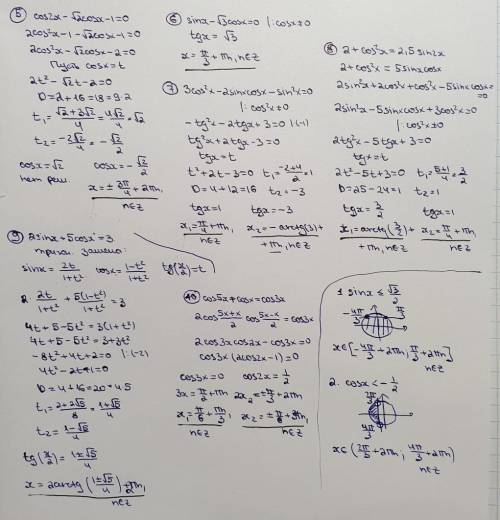 ⑤ cos2x-√2cosx-1=0
2cos²x-1-√2cosx-1=0
2cos²x-√2cosx-2=0
Пусть cosx=t
2t²-√2t-2=0
D=2+16=18=9·2
t₁=(√2+3√2)/4=4√2/4=√2
t₂=-2√2/4=-√2/2
cosx=√2 cosx=-√2/2
нет реш. x=±3π/4+2πn,
n∈z
⑥ sinx-√3cosx=0 |:cosx≠0
tgx=√3
x=π/3+πn, n∈z
⑦ 3cos²x-2sinxcosx-sin²x=0
|:cos²x≠0
-tg²x-2tgx+3=0 |·(-1)
tg²x+2tgx-3=0
tgx=t
t²+2t-3=0 t₁=(-2+4)/2=1
D=4+12=16 t₂=-3
tgx=1 tgx=-3
x₁=π/4+πn, x₂=-arctg(3)+
n∈z +πn, n∈z
⑧ 2+cos²x=2,5sin2x
2+cos²x=5sinxcosx
2sin²x+2cos²x+cos²x-5sinxcosx=
=0
2sin²x-5sinxcosx+3cos²x=0
|:cos²x≠0
2tg²x-5tgx+3=0
tgx=t
2t²-5t+3=0 t₁=(5+1)/4=3/2
D=25-24=1 t₂=1
tgx=3/2 tgx=1
x₁=arctg(3/2)+ x₂=π/4+πn
+πn, n∈z n∈z
⑨ 2sinx+5cosx=3
sinx=2t/(1+t²) cosx=(1-t²)/(1+t²) tg(x/2)=t
2·2t/(1+t²)+5(1-t²)/(1+t²)=3
4t+5-5t²=3(1+t²)
4t+5-5t²=3+3t²
-8t²+4t+2=0 |:(-2)
4t²-2t-1=0
D=4+16=20=4·5
t₁=(2+2√5)/8=(1+√5)/4
t₂=(1-√5)/4
tg(x/2)=(1±√5)/4
x=2arctg((1±√5)/4)+2πn,
n∈z
⑩ cos5x+cosx=cos3x
2cos(5x+x)/2 cos(5x-x)/2=cos3x
2cos3xcos2x-cos3x=0
cos3x(2cos2x-1)=0
cos3x=0 cos2x=1/2
3x=π/2+πn 2x=±π/3+2πn
x₁=π/6+πn/3, x₂=±π/6+πn,
n∈z n∈z
1. sinx≤√3/2
-4π/3 π/3
x∈[-4π/3+2πn; π/3+2πn]
n∈z
2. cosx<-1/2
2π/3
4π/3
x∈(2π/3+2πn; 4π/3+2πn)
n∈z